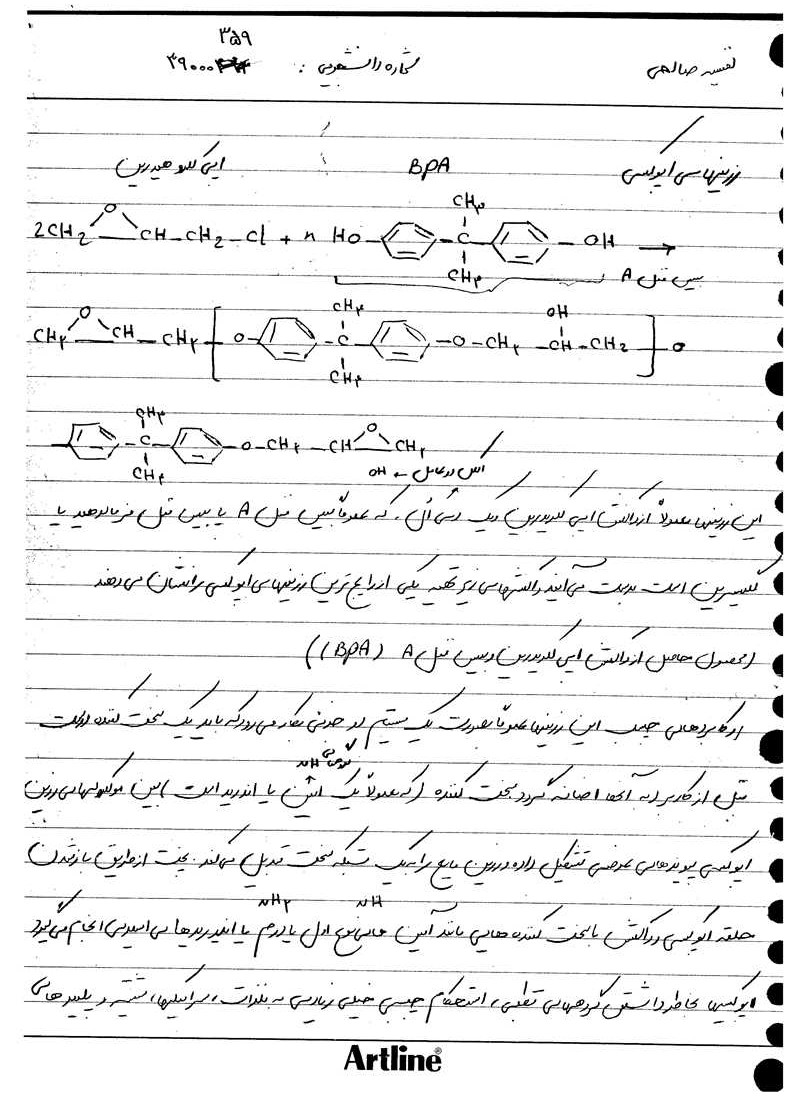 ۳۵۹
نفیسه صالحی شماره دانشجویی : ۳۹۰۰۰
رزینهای اپوکسی BPA اپی کلروهیدرین
O CH₃
2CH₂ CH-CH₂-Cl + n HO- -C- -OH →
CH₃
بیس فنل A
O CH₃ OH
CH₂ CH-CH₂ [ O- -C- -O-CH₂-CH-CH₂ ] O
CH₃
CH₃ O
-C- -O-CH₂-CH CH₂
CH₃ OH ←
این رزینها معمولاً از واکنش اپی کلریدرین و یک دی اُل، که عموماً بیس فنل A یا بیس فنل فرمالدهید یا
گلیسیرین است بدست می‌آیند واکنشهای زیر تهیه یکی از رایج ترین رزینهای اپوکسی را نشان می دهند
(محصول حاصل از واکنش اپی کلریدرین و بیس فنل A (BPA))
در کاربردهای چسب این رزینها عموماً بصورت یک سیستم دو جزئی بکار می‌رود که باید یک سخت کننده درست
NH
قبل از کاربرد به آنها اضافه گردد سخت کننده (که معمولاً یک آمین یا انیدرید است) بین مولکولهای رزین
اپوکسی پیوندهای عرضی تشکیل داده و رزین مایع را به یک شبکه سخت تبدیل می‌کند. پخت از طریق باز شدن
NH₂ NH
حلقه اپوکسی در واکنش با سخت کننده هایی مانند آمین های نوع اول یا دوم یا انیدریدهای اسیدی انجام می گیرد
اپوکسیها بخاطر داشتن گروههای قطبی، استحکام چسبی خیلی زیادی به فلزات، سرامیکها، شیشه و پلیمرهای
Artline